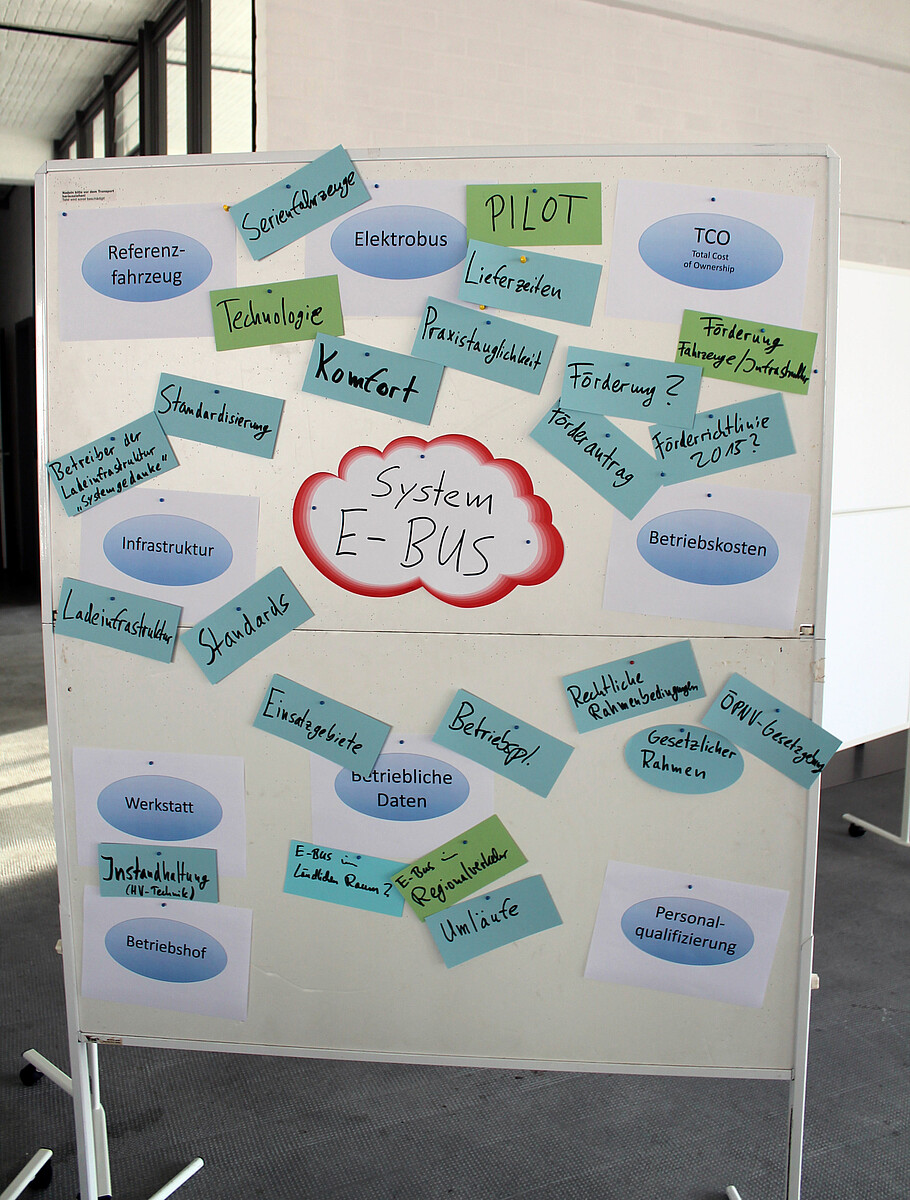 Nadeln bitte vor dem Transport
herausziehen!
Serienfahrzeuge
PILOT
Referenz-
fahrzeug
Elektrobus
TCO
Total Cost
of Ownership
Lieferzeiten
Technologie
Praxistauglichkeit
Förderung
Fahrzeuge/Infrastruktur
Komfort
Förderung?
Standardisierung
Förderantrag
Förderrichtlinie
2015?
Betreiber der
Ladeinfrastruktur
"Systemgedanke"
System
E-BUS
Infrastruktur
Betriebskosten
Ladeinfrastruktur
Standards
Einsatzgebiete
Betriebspl.
Rechtliche
Rahmenbedingungen
ÖPNV-Gesetzgebung
Gesetzlicher
Rahmen
Werkstatt
Betriebliche
Daten
Instandhaltung
(HV-Technik)
E-BUS im
Ländlichen Raum?
E-Bus im
Regionalverkehr
Umläufe
Betriebshof
Personal-
qualifizierung